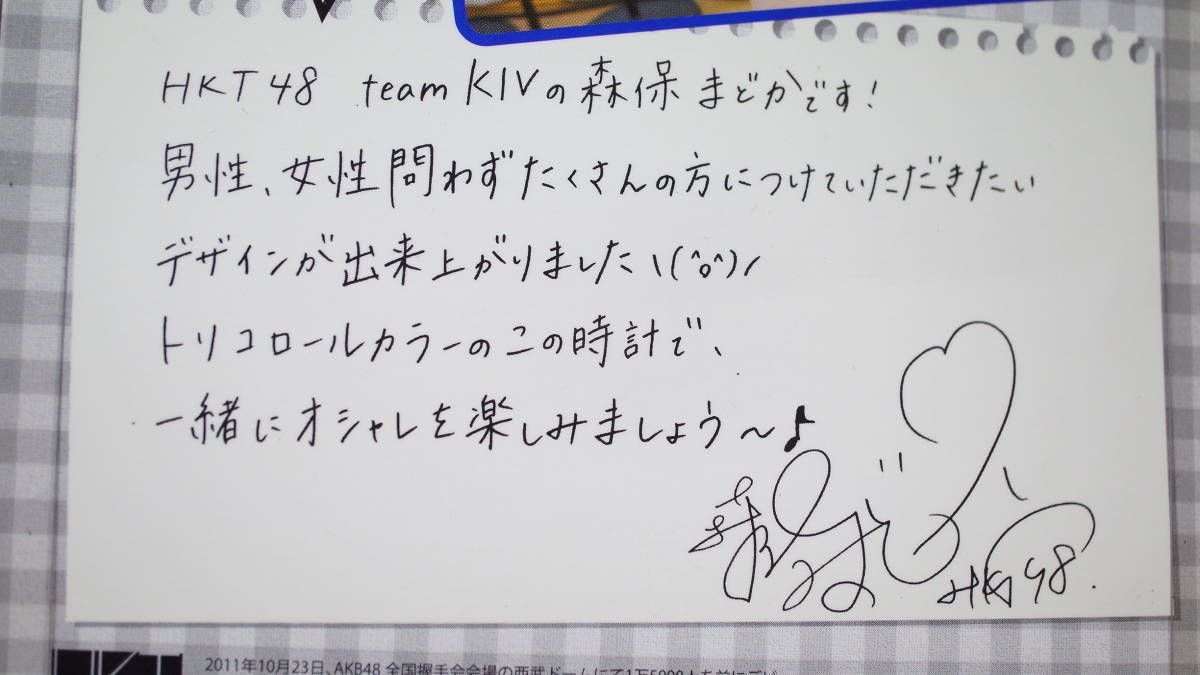 HKT48 team KIVの森保まどかです!
男性、女性問わずたくさんの方につけていただきたい
デザインが出来上がりました\(^o^)/
トリコロールカラーのこの時計で、
一緒にオシャレを楽しみましょう～♪
HKT48.
2011年10月23日、AKB48 全国握手会会場の西武ドームにて1万5000人を前に